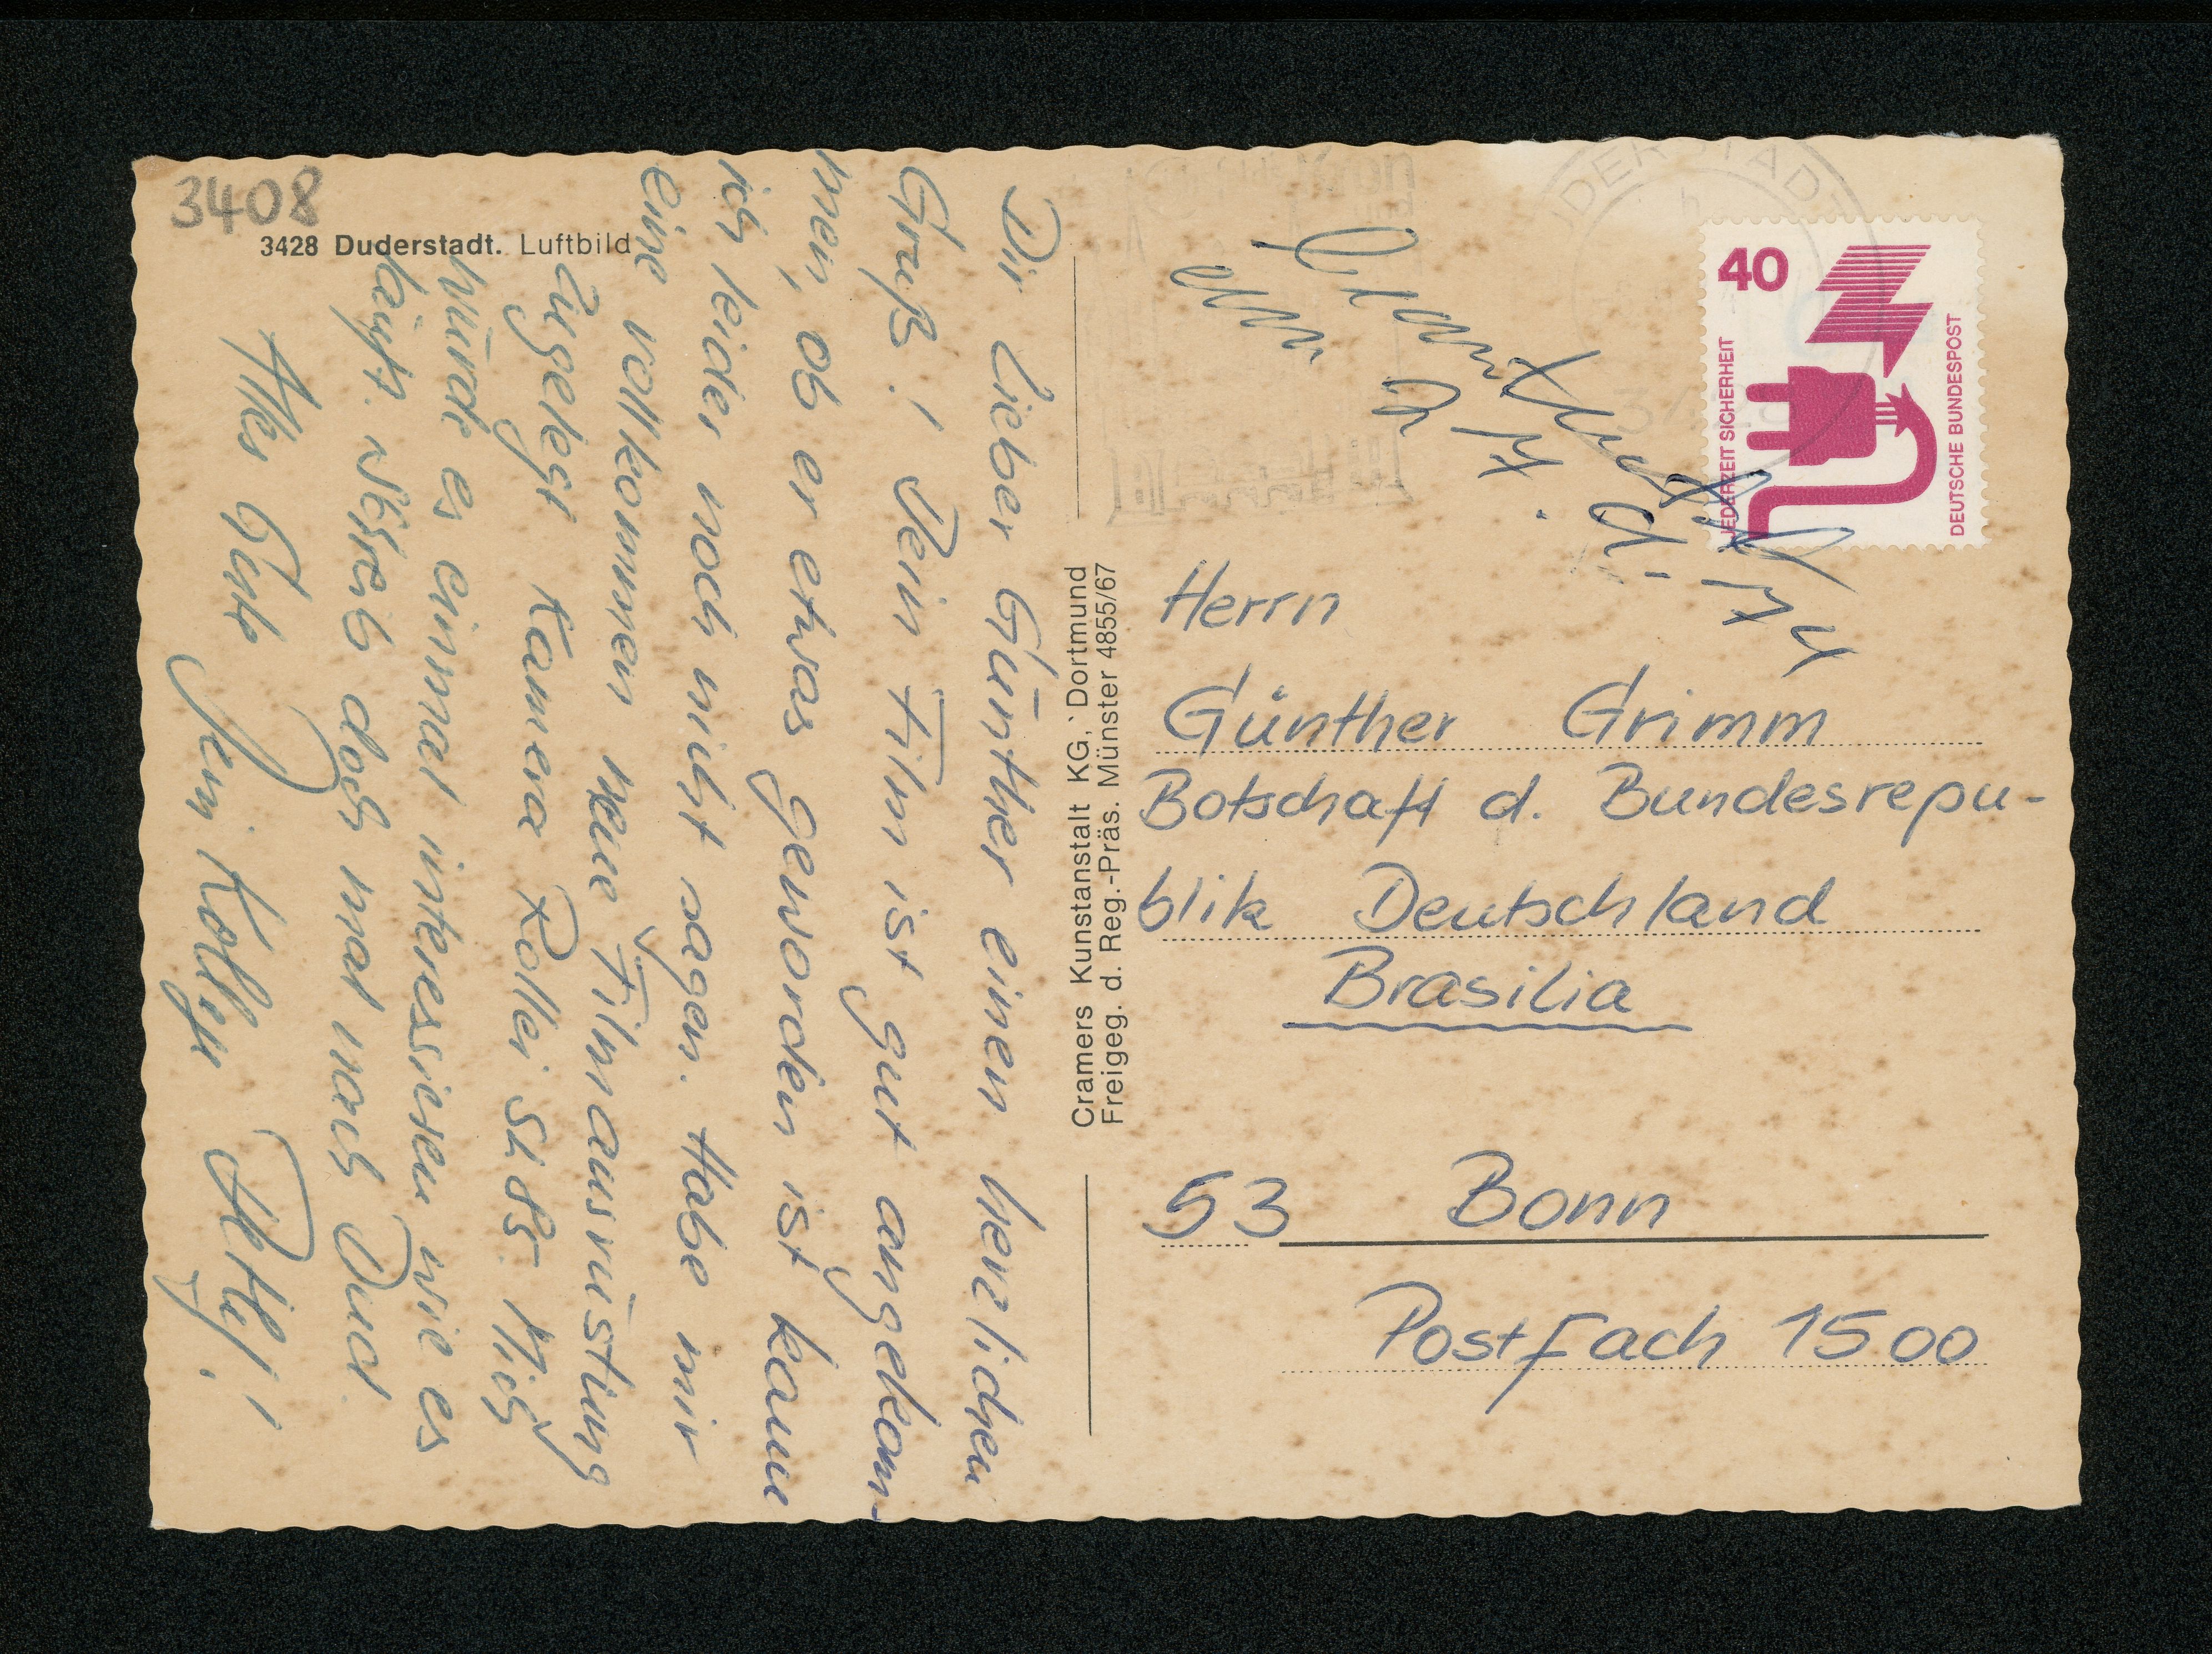 3408
3428 Duderstadt. Luftbild
Dir lieber Günther einen herzlichen
Gruß! Dein Film ist gut angekom-
men, ob er etwas geworden ist kann
ich leider noch nicht sagen. Habe mir
eine vollkommen neue Filmausrüstung
zugelegt Kamera Rollei SL 85. Mich
würde es einmal interessieren wie es
läuft. Schreib doch mal nach Dud.
Alles Gute
Dein Kollege Detlef!
Cramers Kunstanstalt KG, Dortmund
Freigeg. d. Reg.-Präs. Münster 4855/67
DUDERSTADT
40
JEDERZEIT SICHERHEIT
DEUTSCHE BUNDESPOST
Herrn
Günther Grimm
Botschaft d. Bundesrepu-
blik Deutschland
Brasilia
53 Bonn
Postfach 1500